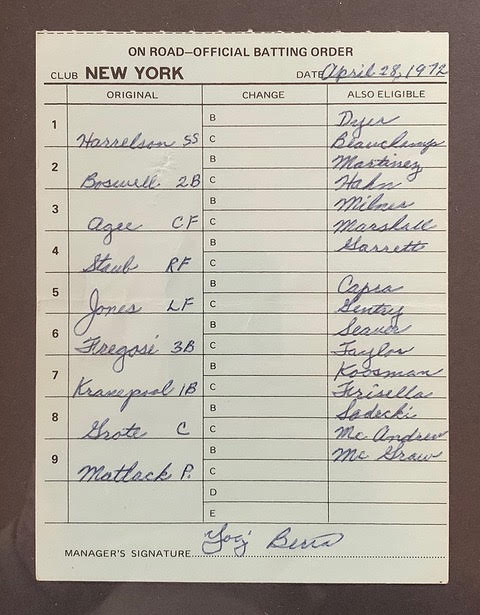 ON ROAD—OFFICIAL BATTING ORDER
CLUB NEW YORK DATE April 28, 1972
ORIGINAL CHANGE ALSO ELIGIBLE
B Dyer
1 Harrelson SS C Beauchamp
B Martinez
2 Boswell 2B C Hahn
B Milner
3 Agee CF C Marshall
B Garrett
4 Staub RF C
B Capra
5 Jones LF C Gentry
B Seaver
6 Fregosi 3B C Taylor
B Koosman
7 Kranepool 1B C Frisella
B Sadecki
8 Grote C C Mc Andrew
B Mc Graw
9 Matlack P. C
D
E
MANAGER'S SIGNATURE Yogi Berra